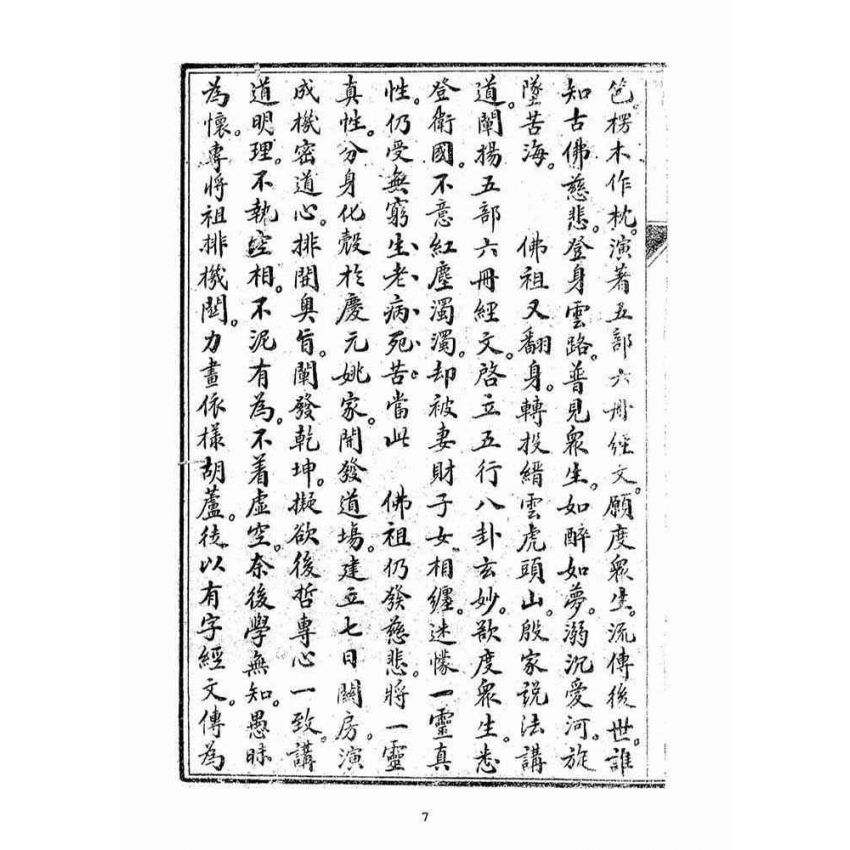 笆。楞木作枕。演著五部六冊經文。願度眾生。流傳後世。誰
知古佛慈悲。登身雲路。普見眾生。如醉如夢。溺沉愛河。旋
墜苦海。　佛祖又翻身。轉投縉雲虎頭山。殷家說法講
道。闡揚五部六冊經文。啓立五行八卦玄妙。欲度眾生。悉
登衛國。不意紅塵濁濁。却被妻財子女相纏。迷懞一靈真
性。仍受無窮生、老、病、死。苦。當此　佛祖仍發慈悲。將一靈
真性。分身化殼於慶元姚家。開發道場。建立七日關房。演
成機密道心。排開奧旨。闡發乾坤。擬欲後哲專心一致。講
道明理。不執空相。不泥有為。不着虛空。奈後學無知。愚昧
為懷。專將祖排機關。力畫依樣胡蘆。徒以有字經文。傳為
7